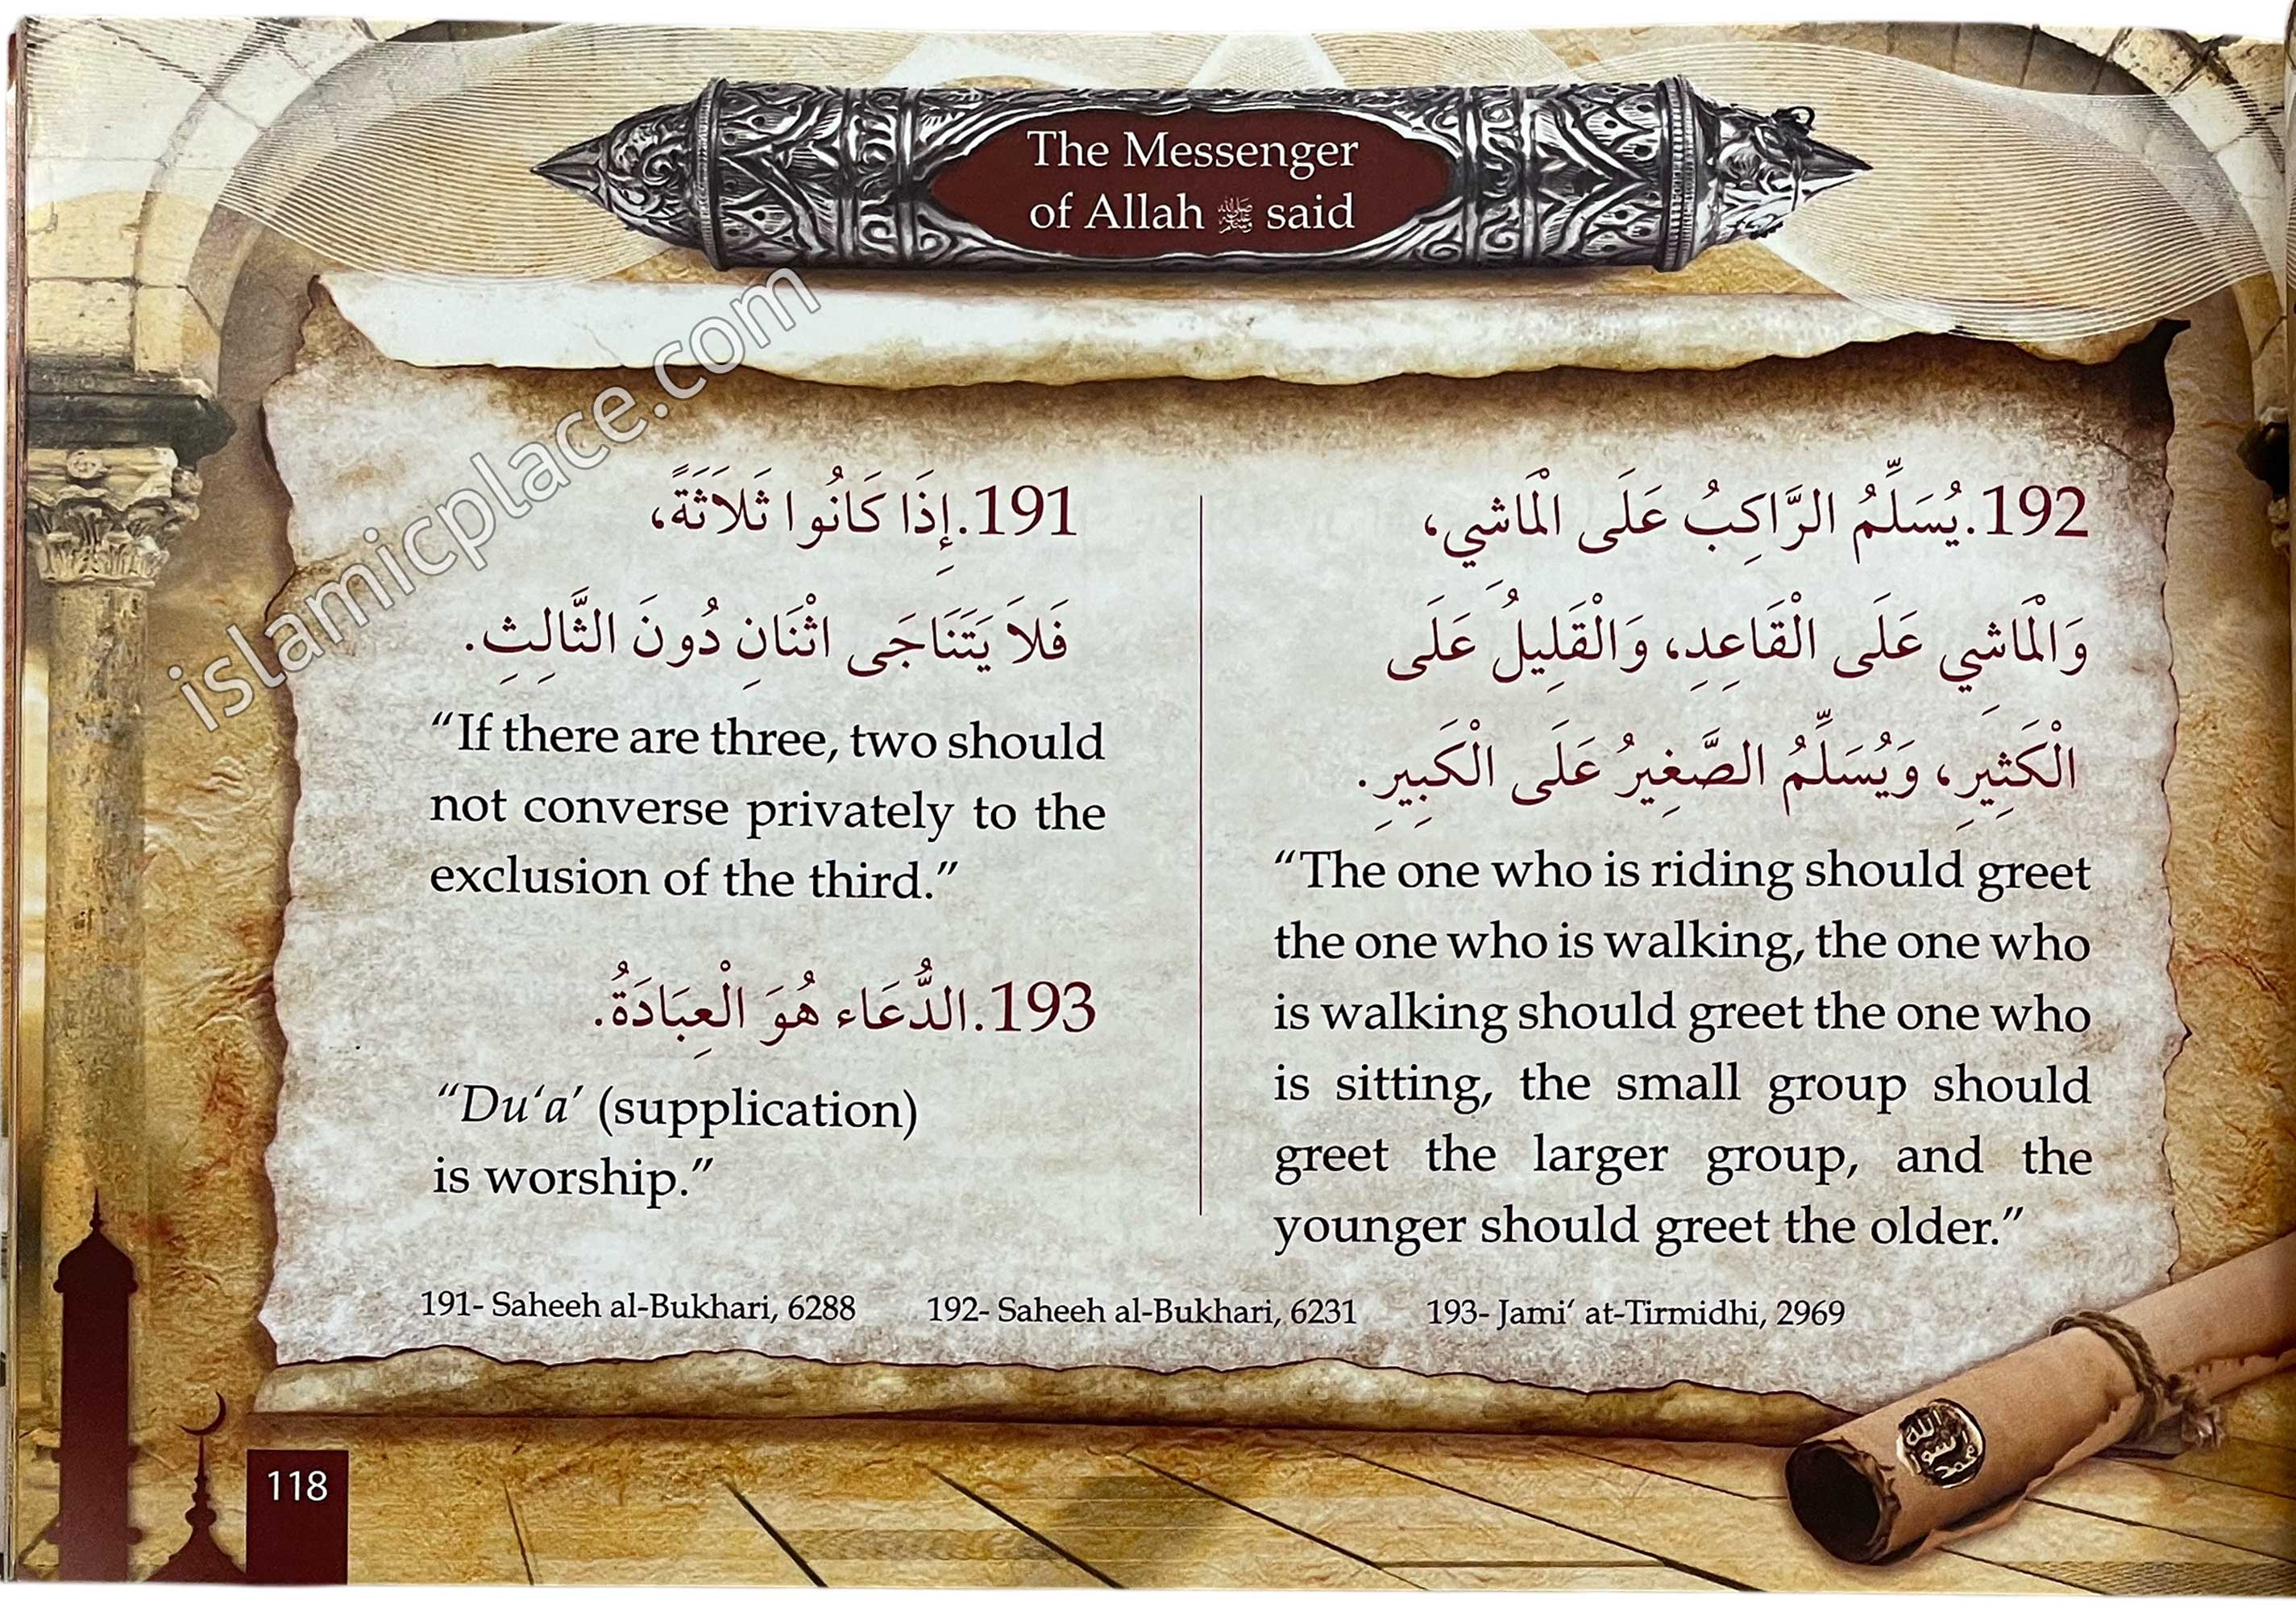 The Messenger
of Allah ﷺ said
191.إِذَا كَانُوا ثَلاَثَةً،
فَلاَ يَتَنَاجَى اثْنَانِ دُونَ الثَّالِثِ.
“If there are three, two should
not converse privately to the
exclusion of the third.”
193.الدُّعَاء هُوَ الْعِبَادَةُ.
“Du‘a’ (supplication)
is worship.”
192.يُسَلِّمُ الرَّاكِبُ عَلَى الْمَاشِي،
وَالْمَاشِي عَلَى الْقَاعِدِ، وَالْقَلِيلُ عَلَى
الْكَثِيرِ، وَيُسَلِّمُ الصَّغِيرُ عَلَى الْكَبِيرِ.
“The one who is riding should greet
the one who is walking, the one who
is walking should greet the one who
is sitting, the small group should
greet the larger group, and the
younger should greet the older.”
191- Saheeh al-Bukhari, 6288 192- Saheeh al-Bukhari, 6231 193- Jami‘ at-Tirmidhi, 2969
118
الله
رسول
محمد
islamicplace.com